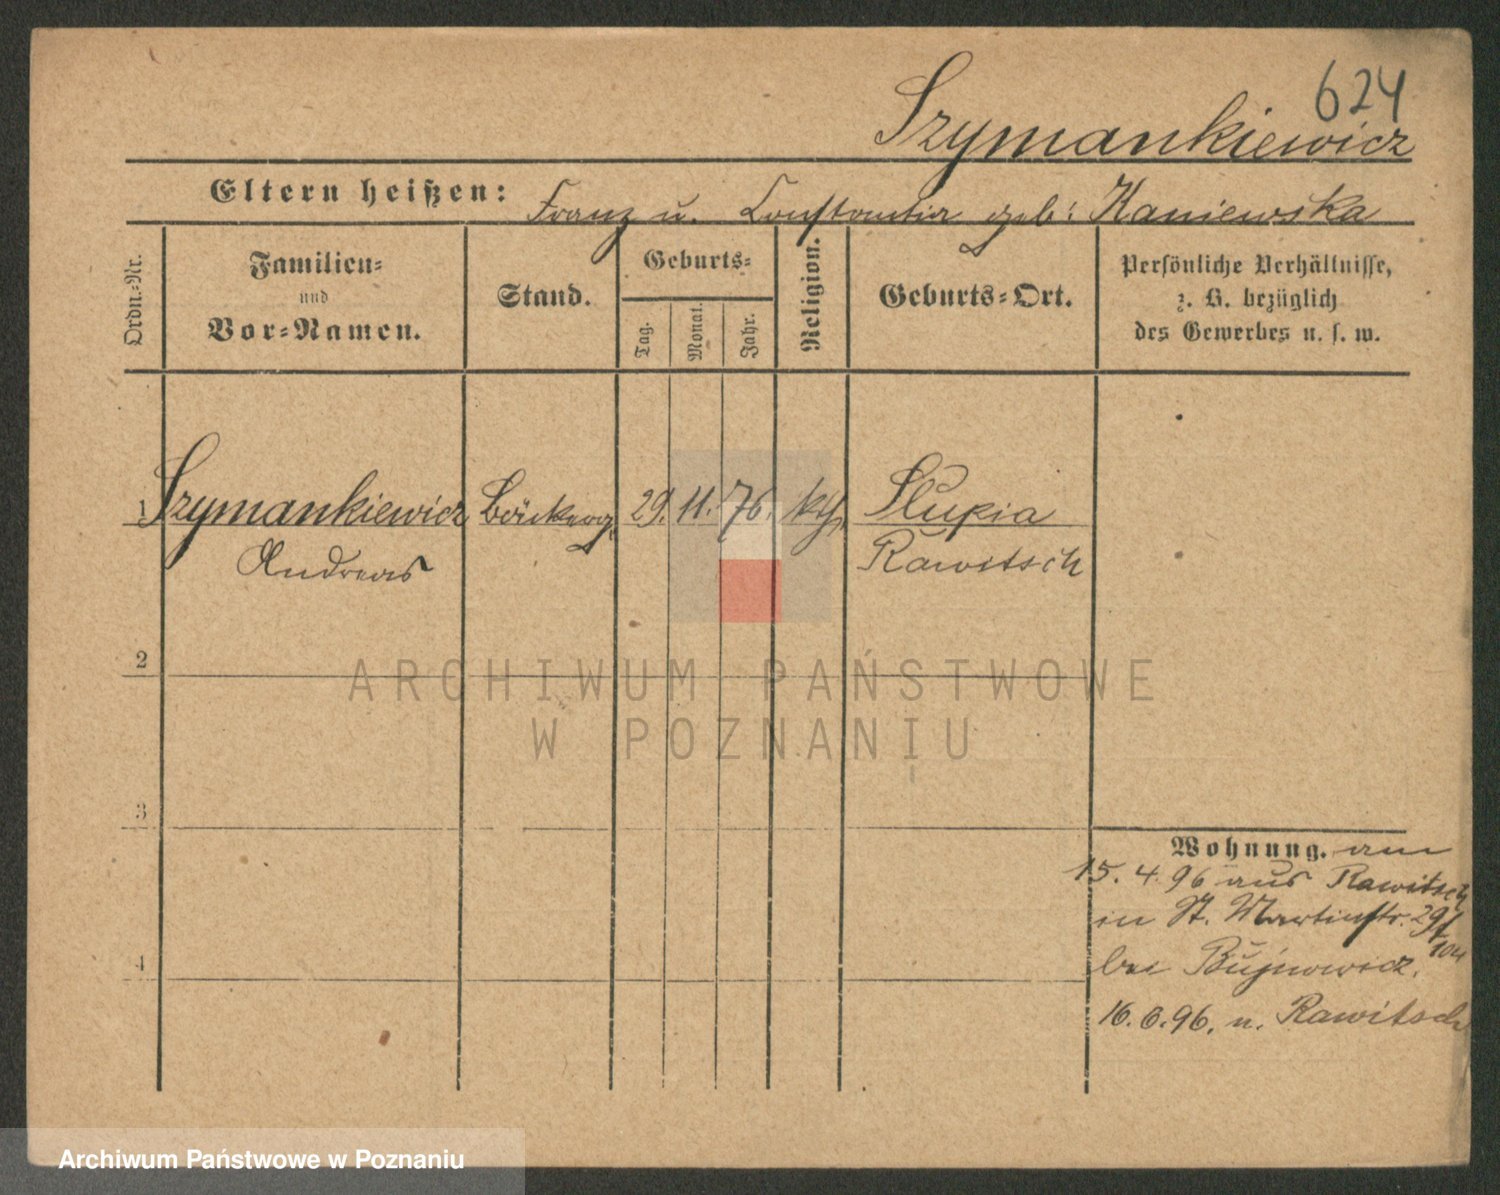 624
Szymankiewicz
Eltern heißen: Franz u. Constantia geb: Kaniewska
Ordn.-Nr.
Familien-
und
Vor-Namen.
Stand.
Geburts-
Tag.
Monat.
Jahr.
Religion.
Geburts-Ort.
Persönliche Verhältnisse,
z. B. bezüglich
des Gewerbes u. s. w.
1 Szymankiewicz Bäckerg. 29. 11. 76. kth. Slupia
Andreas Rawitsch
2
3
4
Wohnung. am
15. 4. 96 aus Rawitsch
in St. Martinstr. 29/
bei Bujnowicz.
16. 6. 96. n. Rawitsch
ARCHIWUM PAŃSTWOWE
W POZNANIU
Archiwum Państwowe w Poznaniu